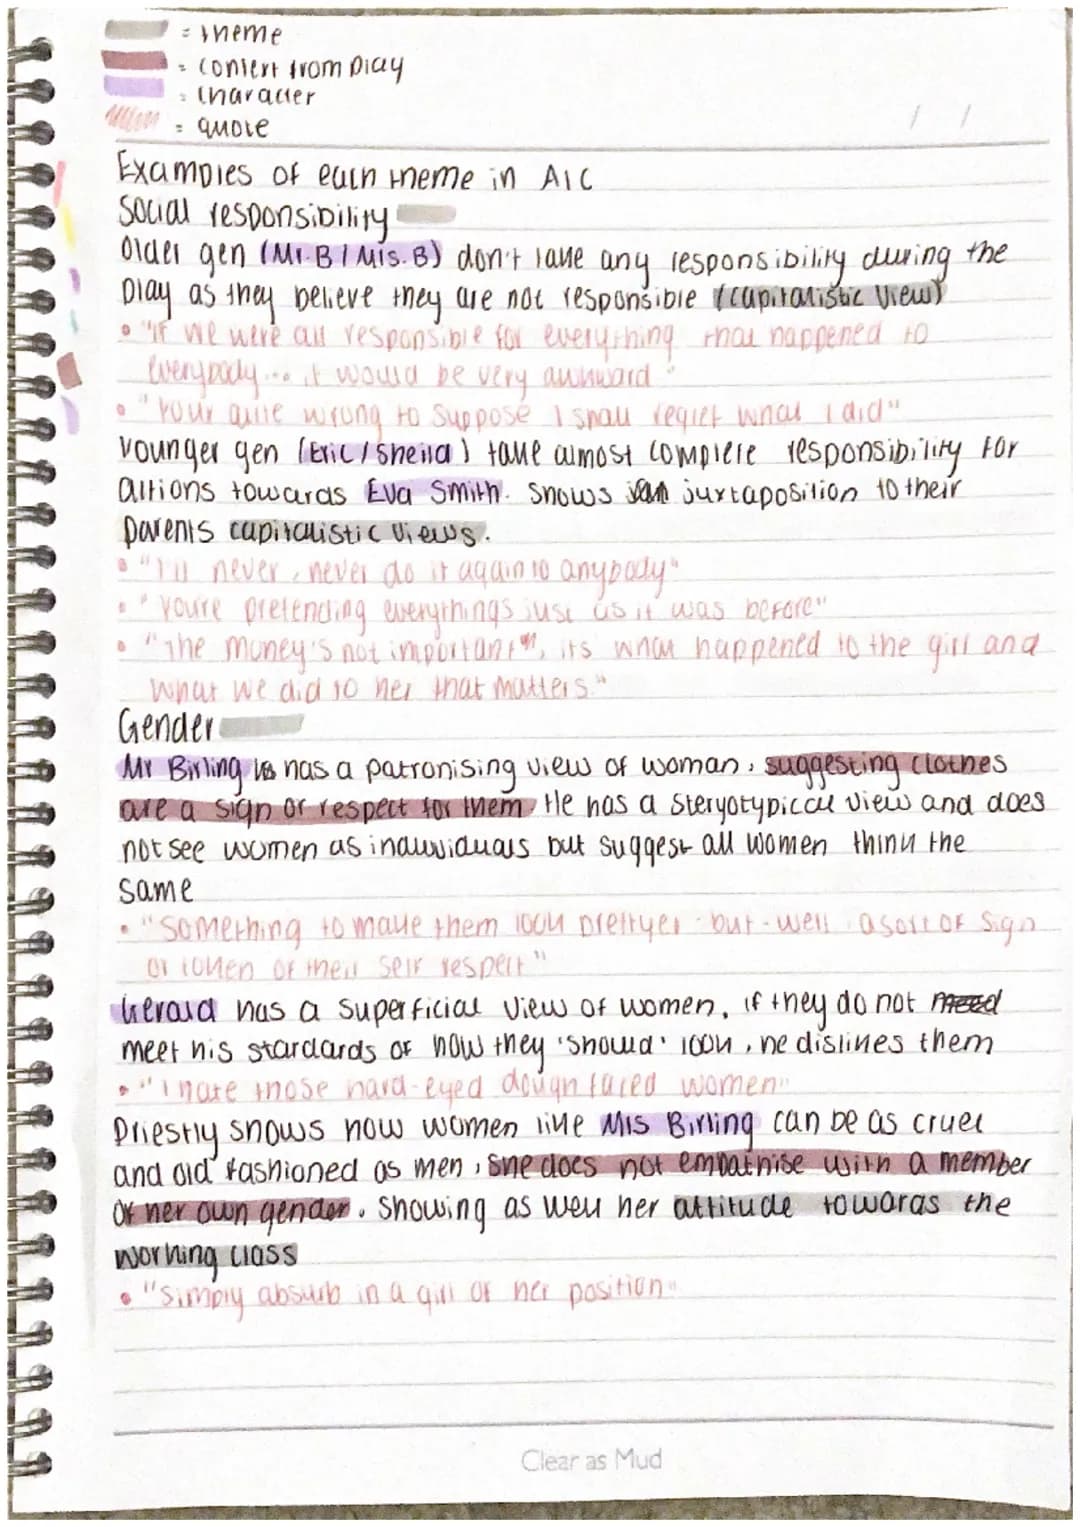 = theme
= context from play
= character
= quote
/ /
Examples of each theme in AIC
Social responsibility
Older gen (Mr.B / Mrs.B) don't take any responsibility during the
play as they believe they are not responsible (capitalistic view)
• "If we were all responsible for everything that happened to
everybody... it would be very awkward"
• "Your quite wrong to suppose I shall regret what I did"
Younger gen (Eric / Sheila) take almost complete responsibility for
actions towards Eva Smith. Shows juxtaposition to their
parents capitalistic views.
• "I'll never, never do it again to anybody"
• "You're pretending everythings just as it was before"
• "The money's not important", its what happened to the girl and
what we did to her that matters."
Gender
Mr Birling has a patronising view of woman, suggesting clothes
are a sign of respect for them. He has a steryotypical view and does
not see women as induviduals but suggest all women think the
same
• "Something to make them look prettyer - but - well . a sort of sign
or token of their self respect"
Gerald has a superficial view of women, if they do not need
meet his stardards of how they 'should' look, he dislikes them
• "I hate those hard-eyed dough faced women"
Priestly shows how women like Mrs Birling can be as cruel
and old fashioned as men, she does not empathise with a member
of her own gender. Showing as well her attitude towards the
working class
• "Simply absurb in a girl of her position"
Clear as Mud